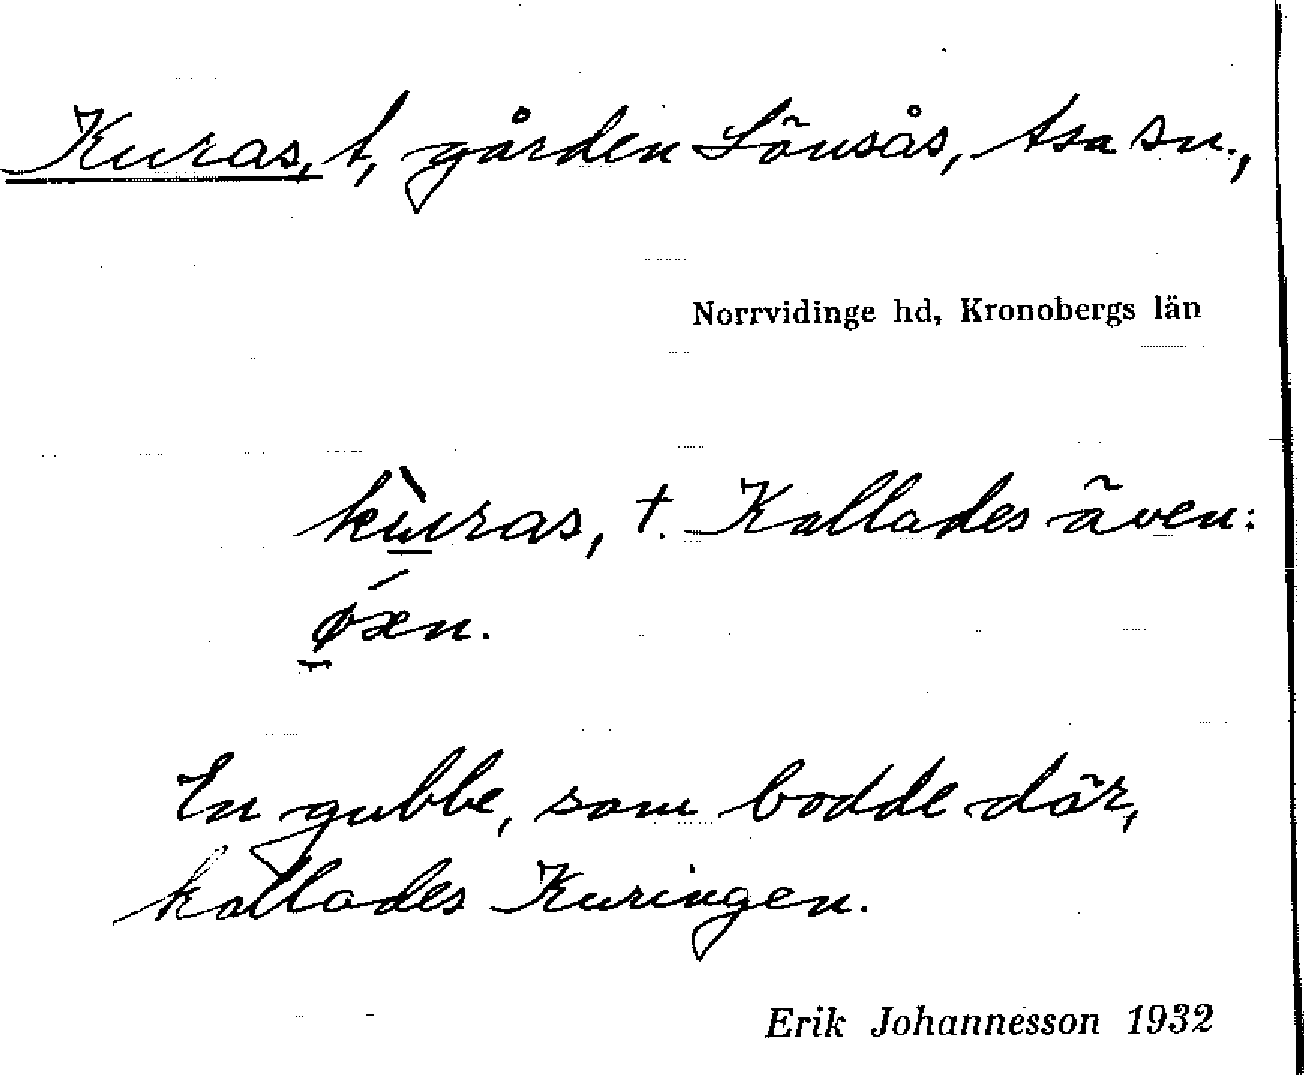 Kuras, t, gården Lönsås, tsa sn.,
Norrvidinge hd, Kronobergs län
kùras, t. Kallades även:
ǿxn.
En gubbe, som bodde där,
kallades Kuringen.
Erik Johannesson 1932